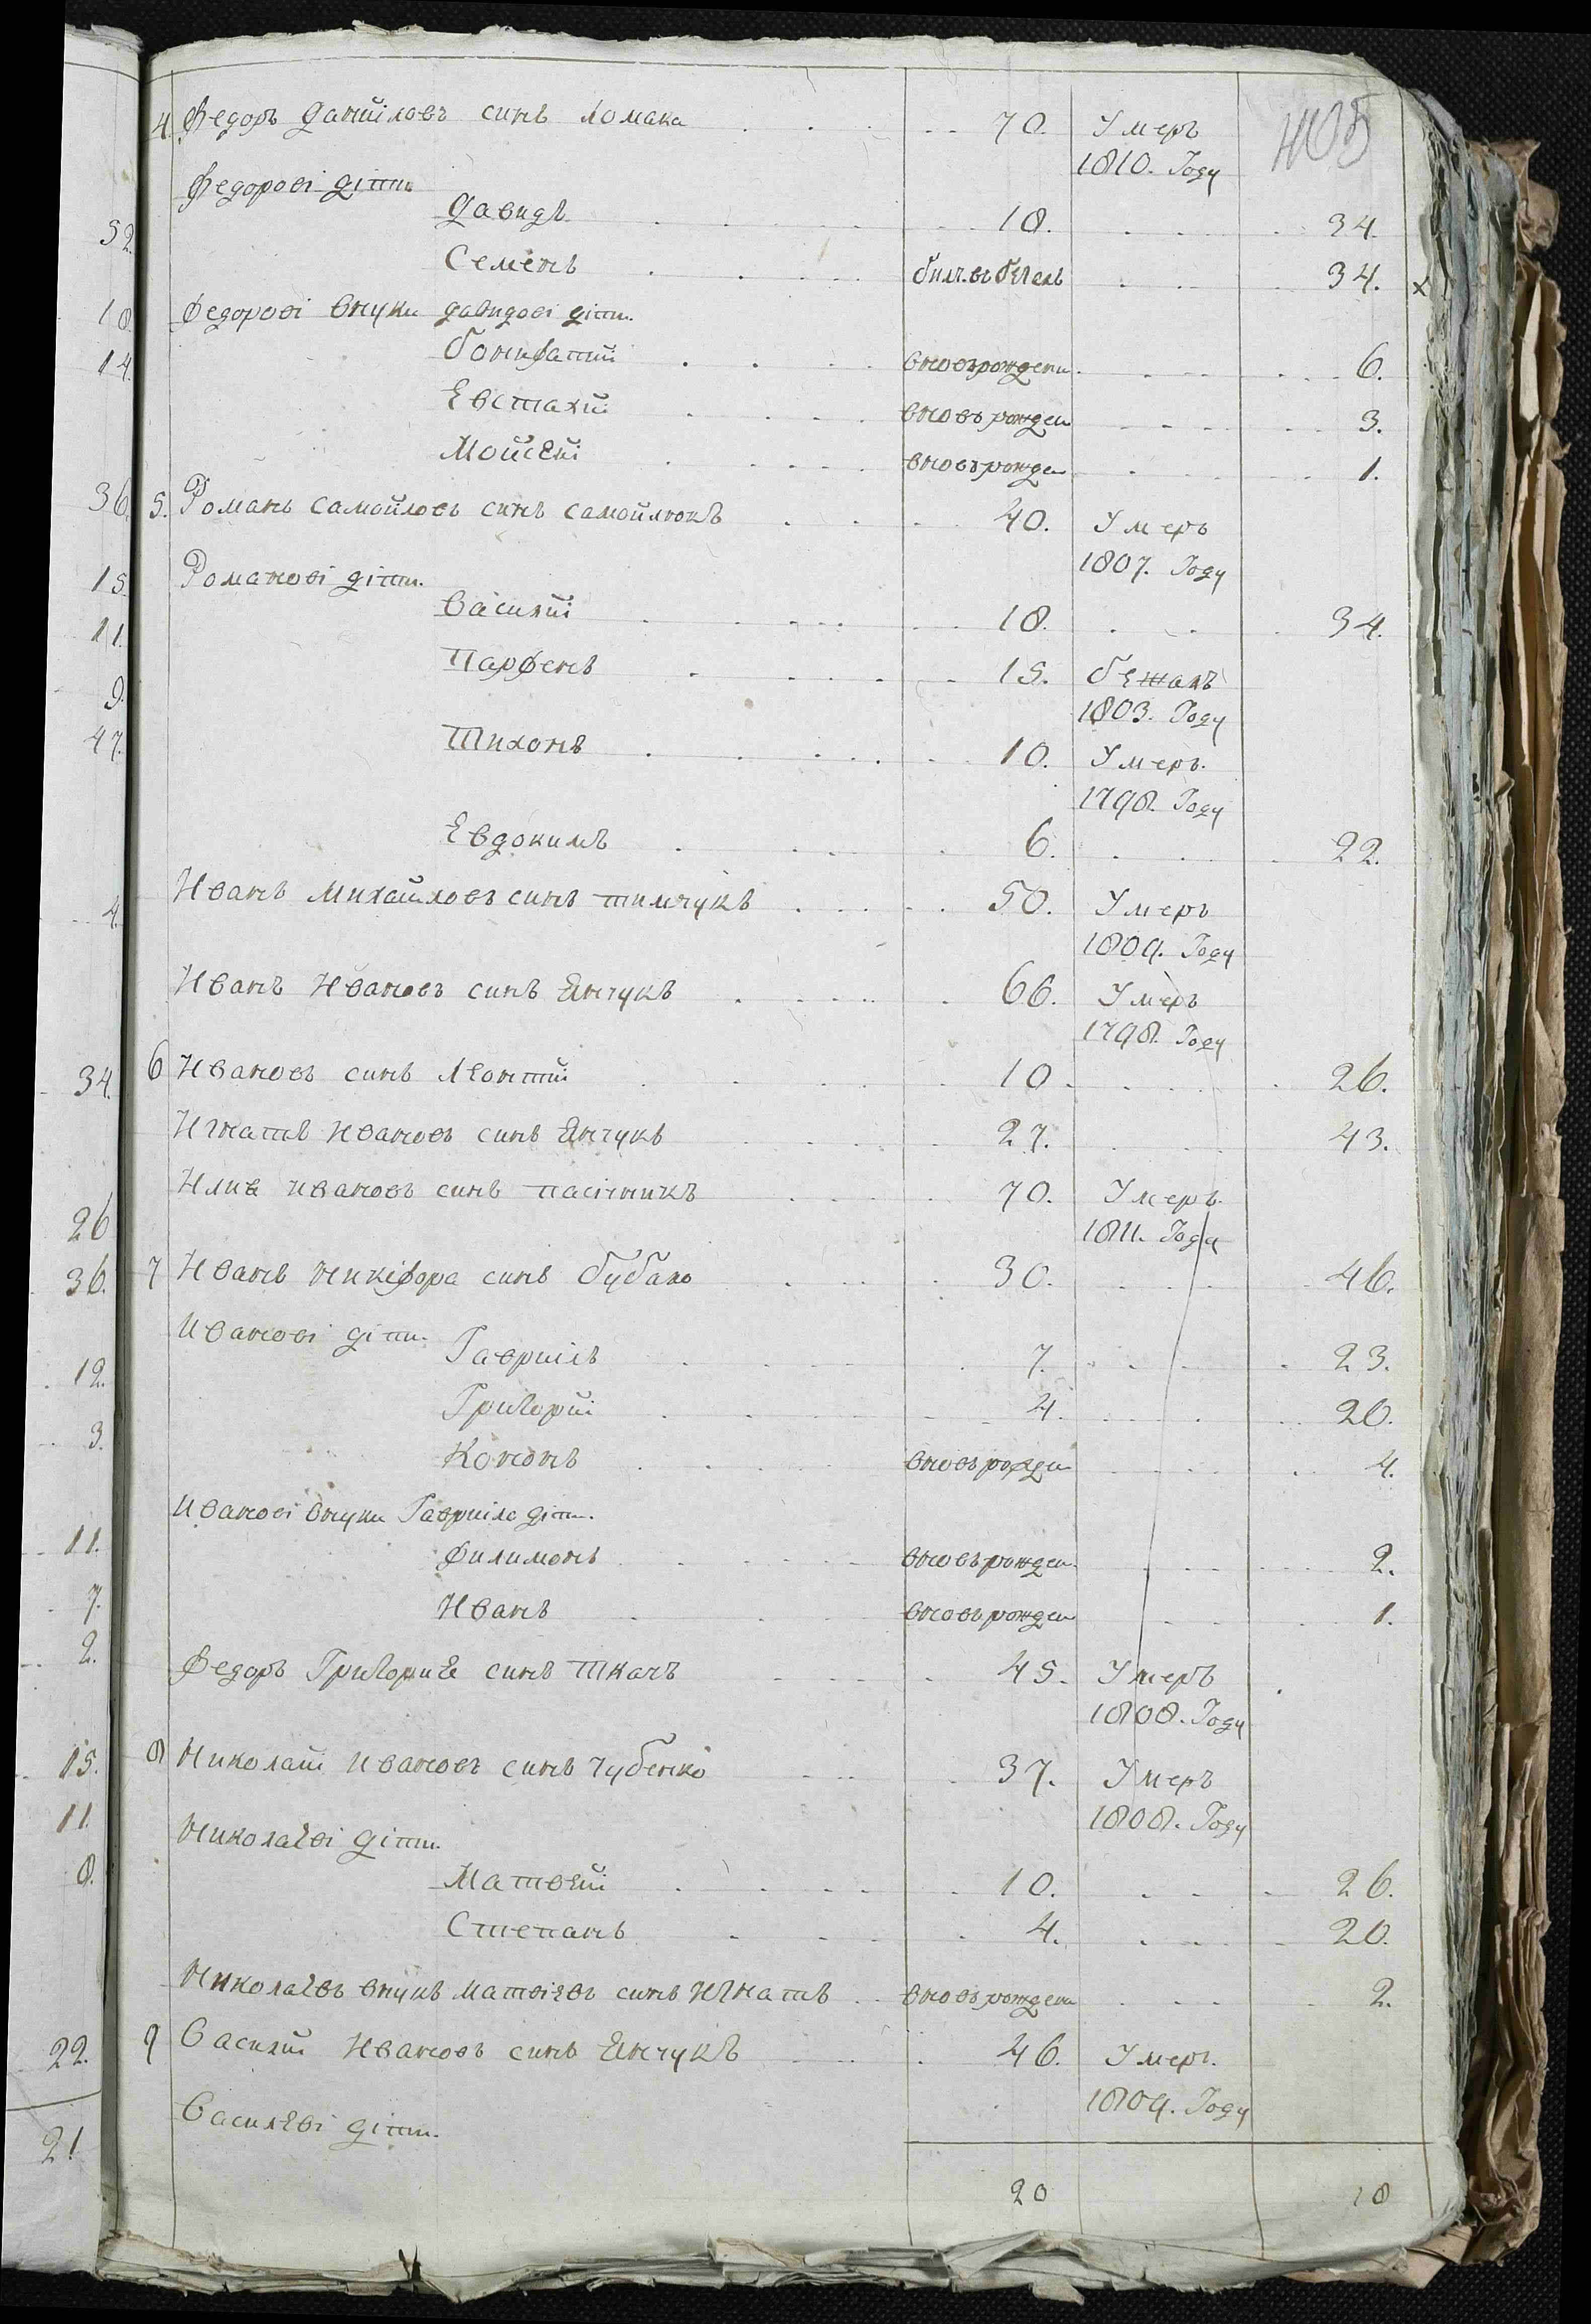 4. Федоръ Даниіловъ синъ Ломака 70. Умеръ
1810. Году
Федорові діти
52. Давидъ 18. 34.
Семенъ билъ въ бегахъ 34. х
18. Федорові внуки Давидові діти
14. Бонифатий вновърожденн 6.
Евстахий вновь рожден 3.
Мойсей вновърожден 1.
36. 5. Романъ Самойловъ синъ Самойлюкъ 40. Умеръ
1807. Году
15. Романові діти.
11. Василий 18. 34.
9. Парфенъ 15. бежалъ
1803. Году
47. Тихонъ 10. Умеръ.
1798. Году
Евдокимъ 6. 22.
4. Иванъ Михайловъ синъ Тимчукъ 50. Умеръ
1809. Году
Иванъ Ивановъ синъ Янчукъ 66. Умеръ
1798. Году
34. 6 Ивановъ синъ Леонтий 10. 26.
Игнатъ Ивановъ синъ Янчукъ 27. 43.
Илия Ивановъ синъ Пасічникъ 70. Умеръ.
26 1811. Года
36. 7 Иванъ Никіфора синъ Бубало 30. 46.
Иванові діти.
12. Гавриілъ 7. 23.
Григорий 4. 20.
3. Кононъ вновърожден 4.
Иванові внуки Гавриіла діти.
11. Филимонъ вновърожден. 2.
7. Иванъ вновърожден 1.
2. Федоръ Григорие синъ Ткачъ 45. Умеръ
1808. Году
15. 8 Николай Ивановъ синъ Чубенко 37. Умеръ
11. 1808. Году
Николаеві діти.
8. Матвей 10. 26.
Степанъ 4. 20.
Николаевъ внукъ Матвіевъ синъ Игнатъ вновърожденн 2.
22. 9 Василий Ивановъ синъ Янчукъ 46. Умеръ.
1809. Году
Василеві діти.
21
20 18